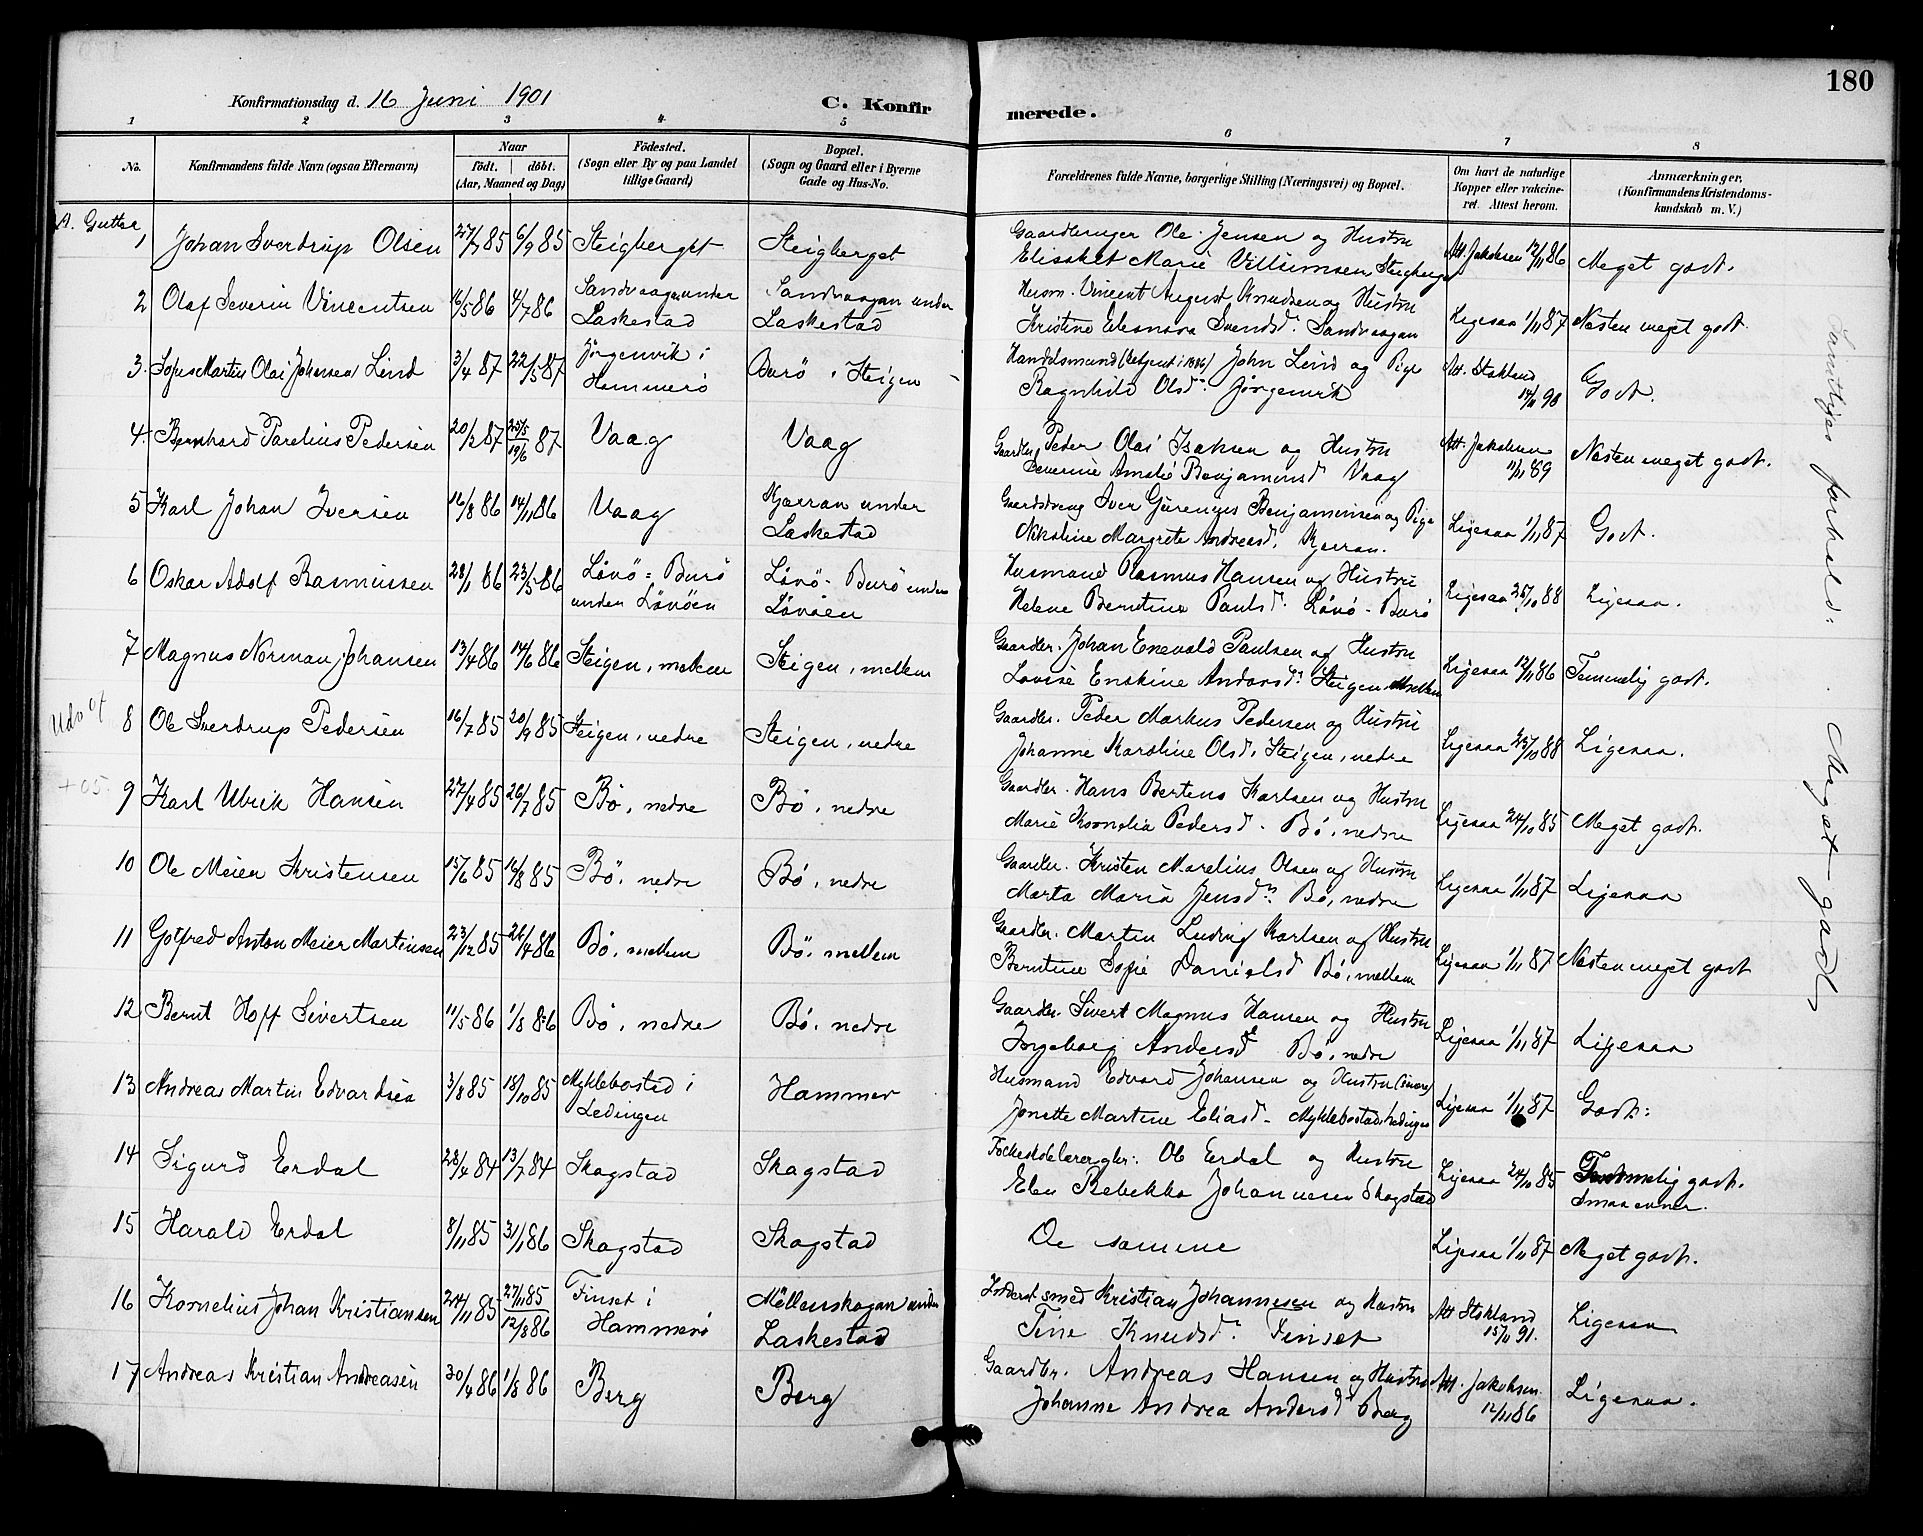 180
Konfirmationsdag d. 16 Juni 1901
C. Konfirmerede.
1 2 3 4 5 6 7 8
No. Konfirmandens fulde Navn (ogsaa Efternavn) Naar född. döbt. (Aar, Maaned og Dag) Födested. (Sogn eller By og paa Landet tillige Gaard) Bopæl. (Sogn og Gaard eller i Byerne Gade og Hus-No. Forældrenes fulde Navne, borgerlige Stilling (Næringsvei) og Bopæl. Om havt de naturlige Kopper eller vakcineret. Attest herom. Anmærkninger. (Konfirmandens Kristendomskundskab m. V.)
A. Gutter
1 Johan Sverdrup Olsen 27/7 85 6/9 85 Steigberget Steigberget Gaardbruger Ole Jensen og Hustru Att. Jakobsen 12/11 86 Meget godt.
Elisabet Marie Villumsen Steigberget
2 Olaf Severin Vincentsen 16/5 86 4/7 86 Sandvaagan under Laskestad Sandvaagan under Laskestad Husm. Vincent August Knudsen og Hustru Ligesaa 1/11 87 Næsten meget godt.
Kristine Eleonora Svendsd. Sandvaagan
3. Sofus Martin Olai Johansen Lind 3/4 87 22/5 87 Jörgenvik i Hammerö Burö i Steigen John Lind og Pige Att. Stokland 14/11 90 Godt.
Ragnhild Olsd. Jörgenvik
4 Bernhard Parelius Pedersen 20/2 87 25/5 19/6 87 Vaag Vaag Gaardbr. Peder Olai Isaksen og Hustru Att. Jakobsen 11/11 89 Næsten meget godt.
Severine Amalie Benjaminsd Vaag
5 Karl Johan Iversen 16/8 86 14/11 86 Vaag Kjærran under Laskestad Gaardsdreng Iver Benjaminsen og Pige Ligesaa 1/11 87 Godt.
Nikoline Margrete Andreasd. Kjerran.
6 Oskar Adolf Rasmussen 28/1 86 23/5 86 Lövö-Burö under Lövöen Lövö-Burö under Lövöen Husmand Rasmus Hansen og Hustru Ligesaa 25/10 88 Ligesaa.
Helene Berntine Paulsd. Lövö-Burö
7 Magnus Norman Johansen 13/4 86 14/6 86 Steigen, mellem Steigen, mellem Gaardbr. Johan Enevold Paulsen og Hustru Ligesaa 12/11 86 Temmelig godt.
Lovise Enskine Andersd. Steigen Mellem
8 Ole Sverdrup Pedersen 16/7 85 20/9 85 Steigen, nedre Steigen, nedre Gaardbr. Peder Markus Pedersen og Hustru Ligesaa 25/10 88 Ligesaa.
Johanne Karoline Olsd. Steigen, nedre
+ 05. 9 Karl Ulrik Hansen 27/4 85 26/7 85 Bö, nedre Bö, nedre Gaardbr. Hans Bertens Karlsen og Hustru Ligesaa 24/10 85 Meget godt.
Marie Kornelia Pedersd. Bö, nedre
10 Ole Meier Kristensen 15/6 85 16/8 85 Bö, nedre Bö, nedre Gaardbr. Kristen Marelius Olsen og Hustru Ligesaa 1/11 87 Ligesaa
Marta Maria Jensd. Bö, nedre
11 Gotfred Anton Meier Martinsen 23/12 85 26/4 86 Bö, mellem Bö, mellem Gaardbr. Martin Ludvig Karlsen og Hustru Ligesaa 1/11 87 Næsten meget godt
Berntine Sofie Danielsd Bö, mellem
12 Bernt Hoff Sivertsen 11/5 86 1/8 86 Bö, nedre Bö, nedre Gaardbr. Sivert Magnus Hansen og Hustru Ligesaa 1/11 87 Ligesaa
Ingeborg Andersd Bö, nedre
13 Andreas Martin Edvardsen 3/8 85 18/10 85 Myklebostad i Lödingen Hammer Husmand Edvard Johansen og Hustru Ligesaa 1/11 87 Godt.
Jonette Martine Eliasd. Myklebostad Lödingen
14 Sigurd Erdal 28/4 84 13/7 84 Skagstad Skagstad Ole Erdal og Hustru Ligesaa 24/10 85 Temmelig godt. Smaa evner.
Elen Rebekka Johannesen Skagstad
15 Harald Erdal 8/11 85 31/1 86 Skagstad Skagstad De samme Ligesaa 1/11 87 Meget godt.
16 Kornelius Johan Kristiansen 24/11 85 27/11 85 12/8 86 Finset i Hammerö Mellenskogan under Laskestad Inderst smed Kristian Johannesen og Hustru Att Stokland 15/11 91. Ligesaa
Tine Knudsd. Finset
17 Andreas Kristian Andreasen 30/4 86 1/8 86 Berg Berg Gaardbr. Andreas Hansen og Hustru Att. Jakobsen. 12/11 86 Ligesaa.
Johanne Andrea Andersd Berg
Samtliges forhold: Meget godt